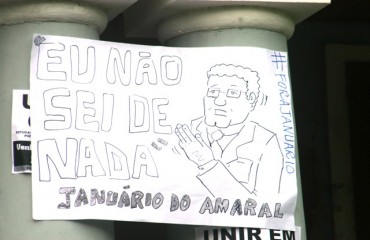 EU NÃO
SEI DE
NADA
JANUÁRIO DO AMARAL
#FORAJANUÁRIO
UNIR EM